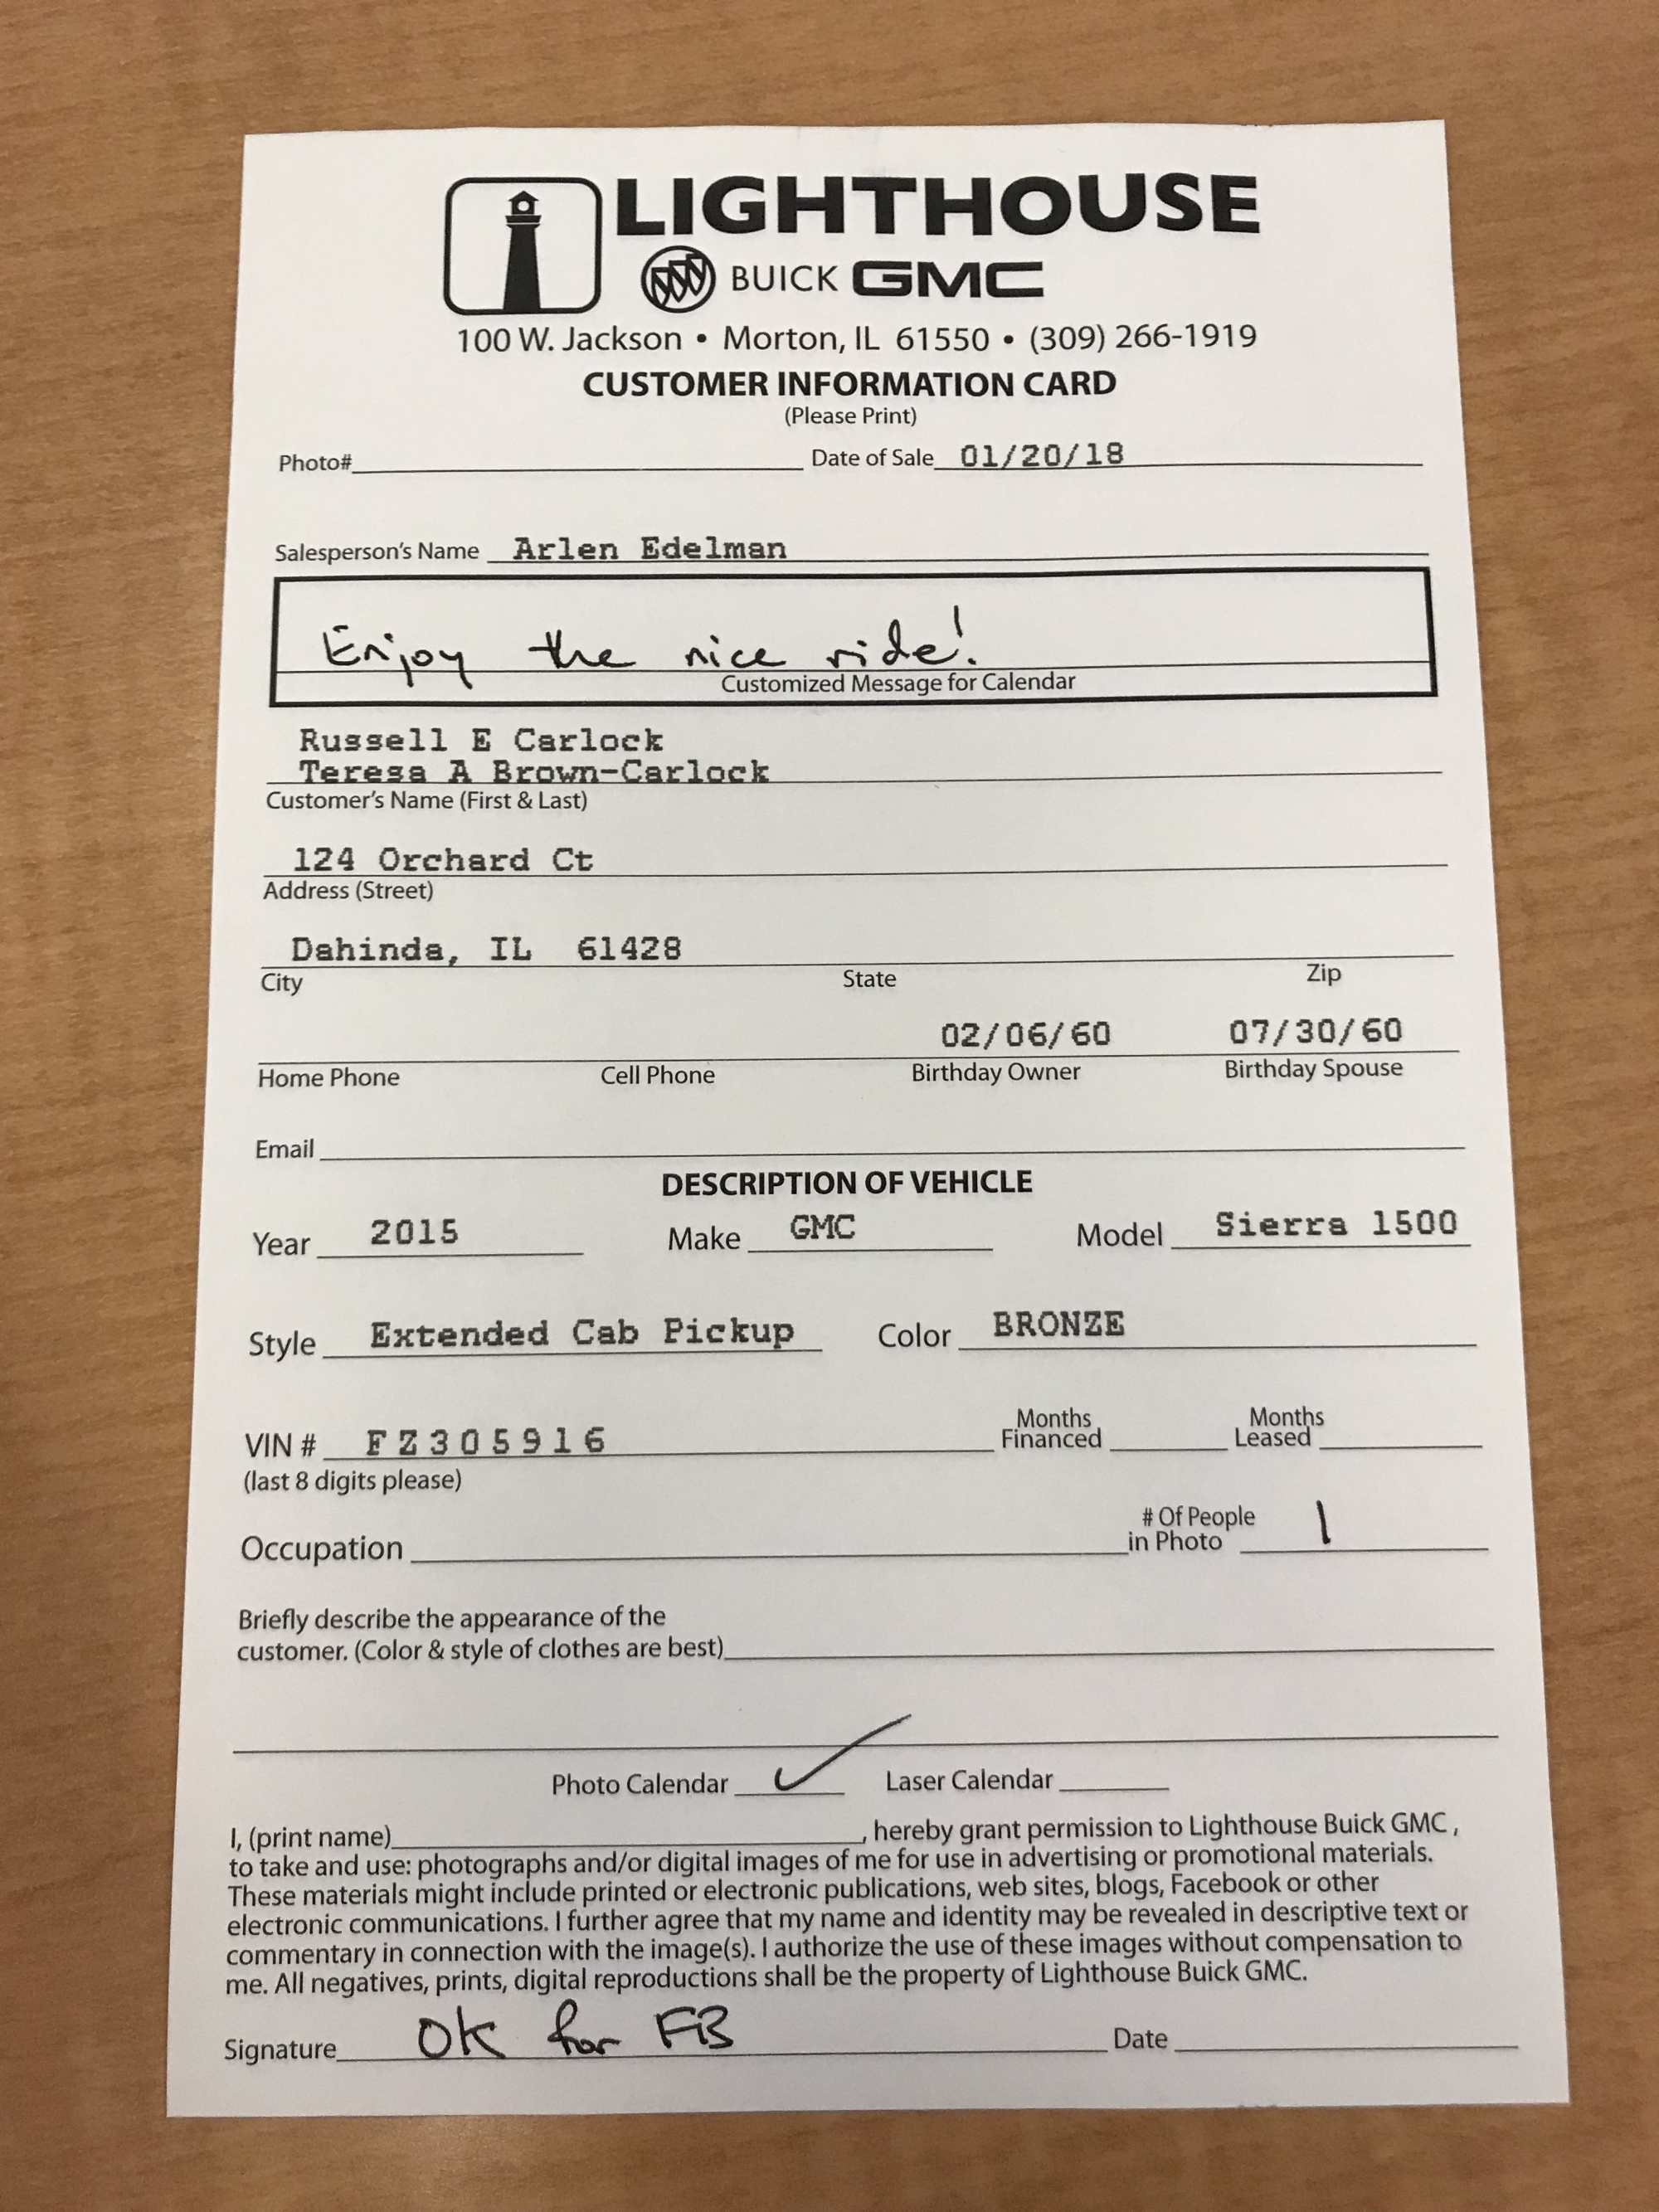 LIGHTHOUSE
BUICK GMC
100 W. Jackson • Morton, IL 61550 • (309) 266-1919
CUSTOMER INFORMATION CARD
(Please Print)
Photo# Date of Sale 01/20/18
Salesperson's Name Arlen Edelman
Enjoy the nice ride!
Customized Message for Calendar
Russell E Carlock
Teresa A Brown-Carlock
Customer's Name (First & Last)
124 Orchard Ct
Address (Street)
Dahinda, IL 61428
City State Zip
02/06/60 07/30/60
Home Phone Cell Phone Birthday Owner Birthday Spouse
Email
DESCRIPTION OF VEHICLE
Year 2015 Make GMC Model Sierra 1500
Style Extended Cab Pickup Color BRONZE
VIN # FZ305916 Months Financed Months Leased
(last 8 digits please)
Occupation # Of People in Photo 1
Briefly describe the appearance of the
customer. (Color & style of clothes are best)
Photo Calendar ✓ Laser Calendar
I, (print name) , hereby grant permission to Lighthouse Buick GMC ,
to take and use: photographs and/or digital images of me for use in advertising or promotional materials.
These materials might include printed or electronic publications, web sites, blogs, Facebook or other
electronic communications. I further agree that my name and identity may be revealed in descriptive text or
commentary in connection with the image(s). I authorize the use of these images without compensation to
me. All negatives, prints, digital reproductions shall be the property of Lighthouse Buick GMC.
Signature OK for FB Date